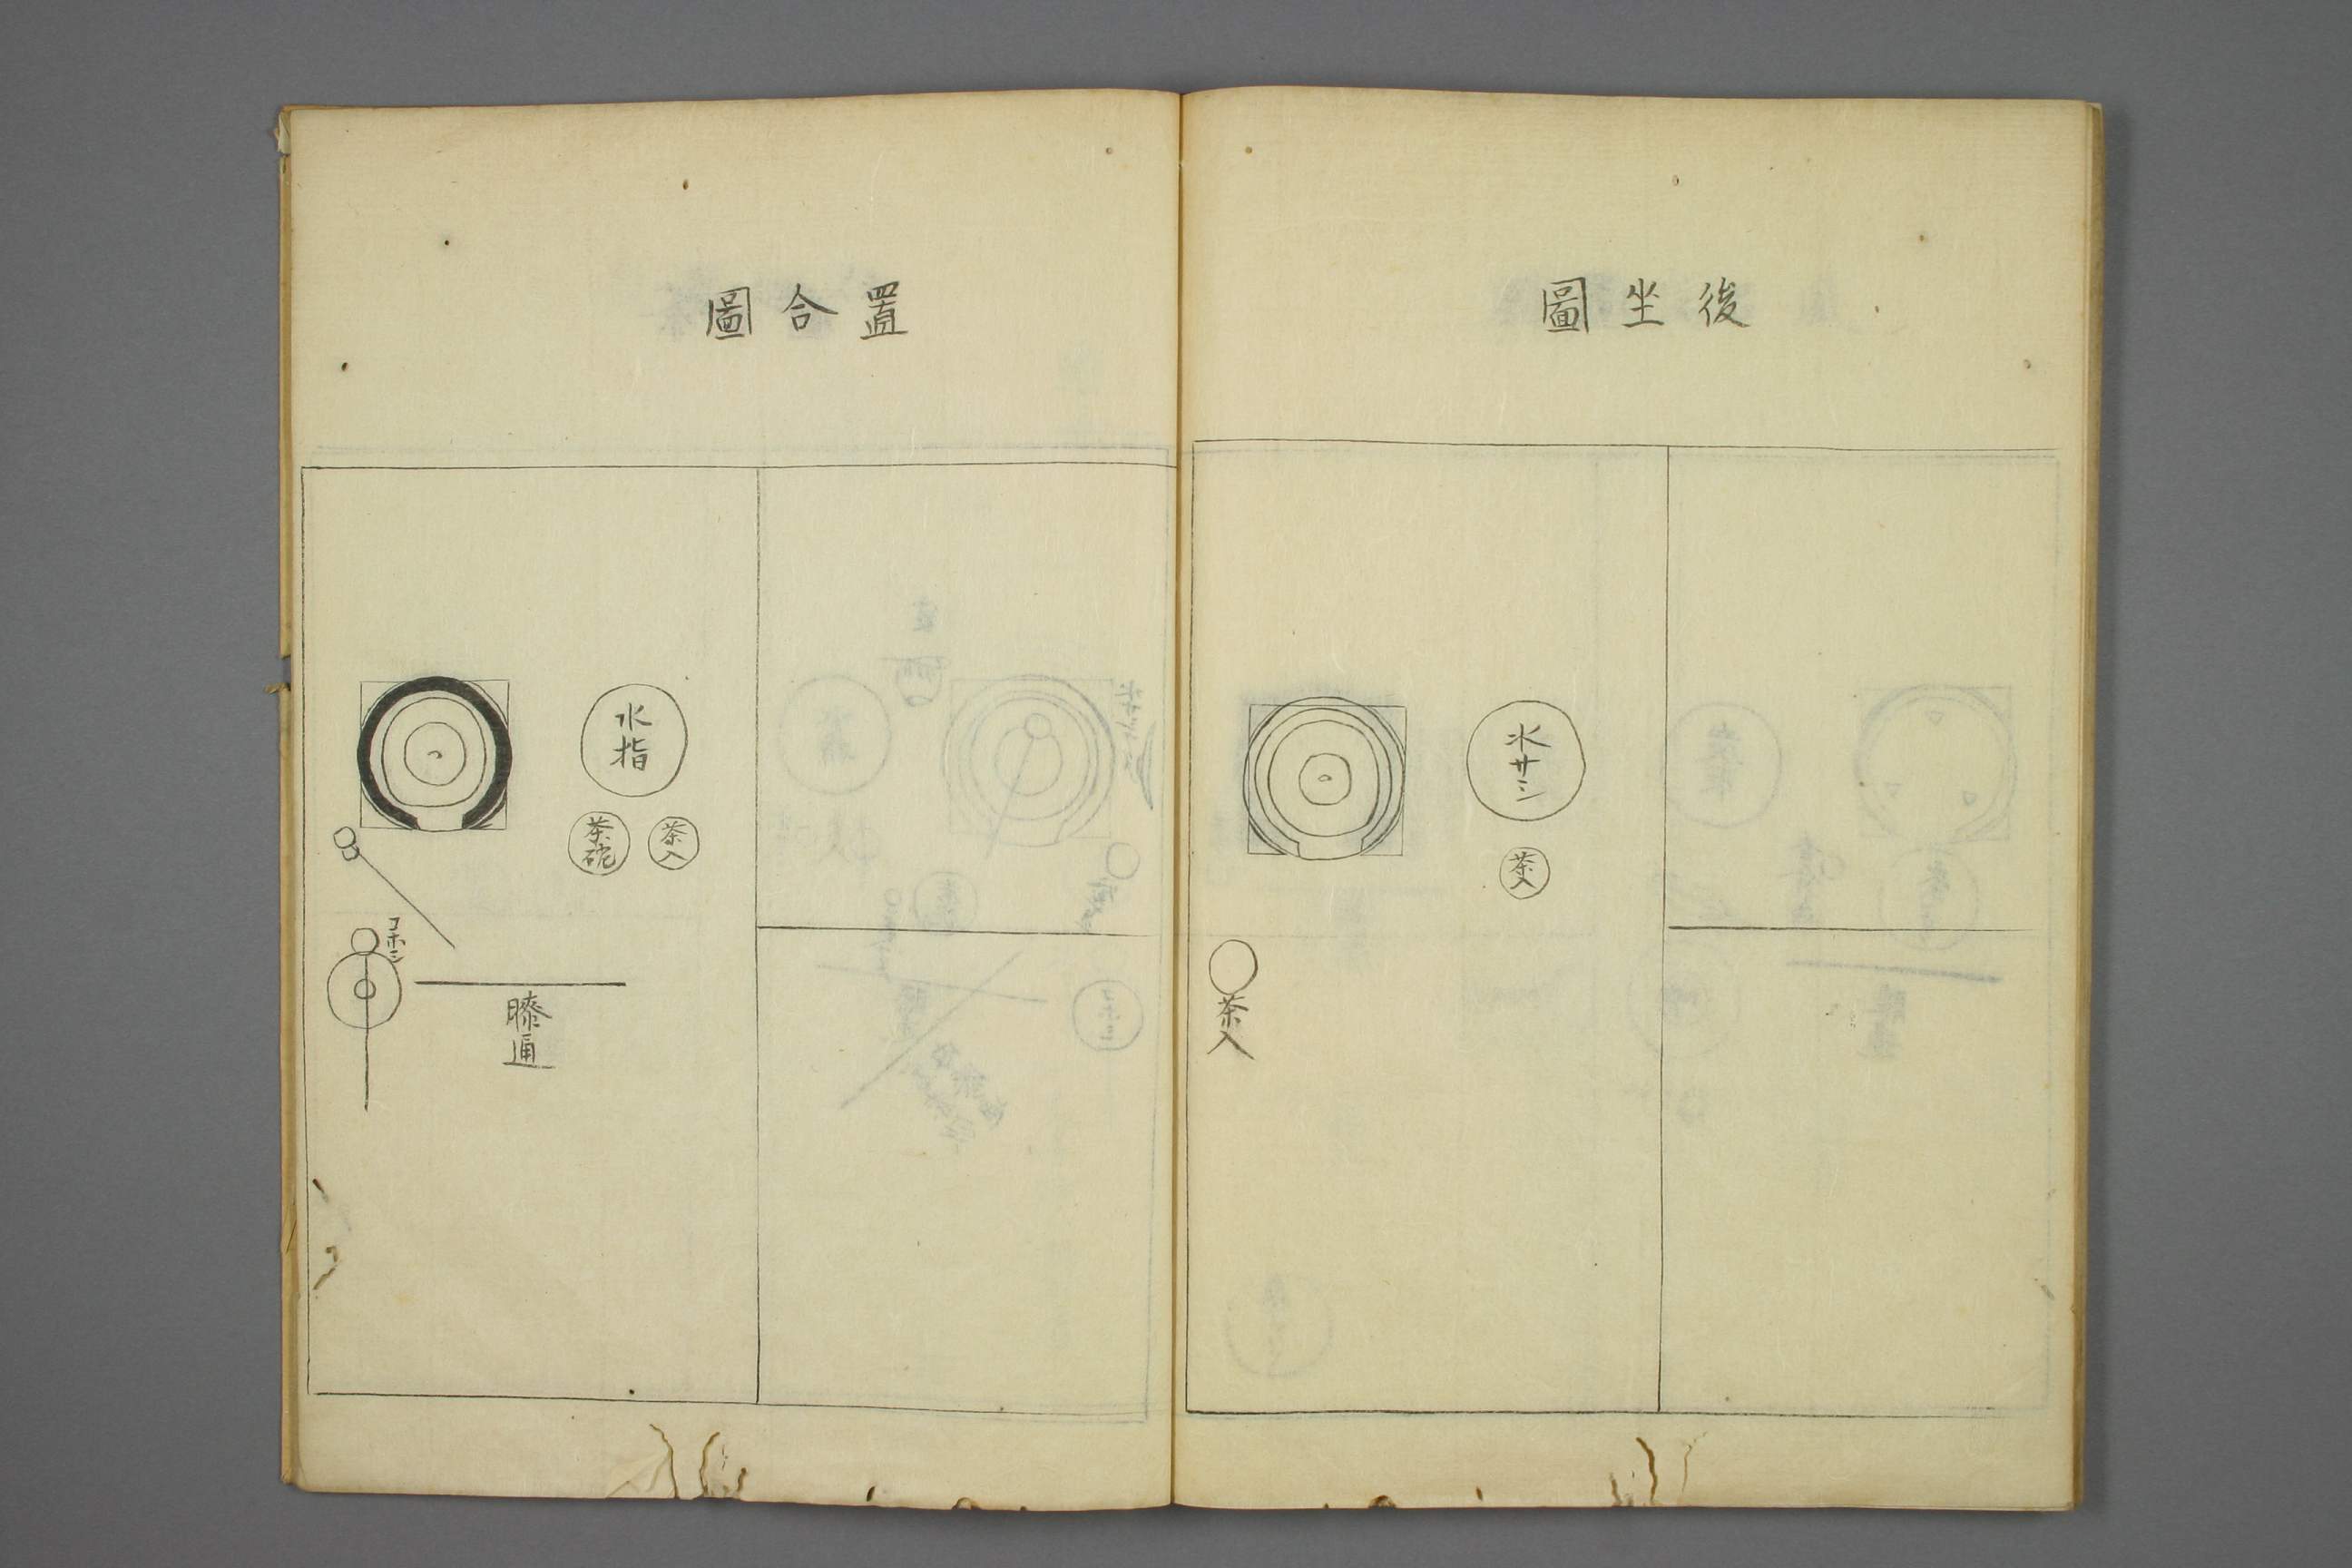 後坐圖
水サシ
茶入
茶入
置合圖
水指
茶入
茶碗
コホシ
膝通